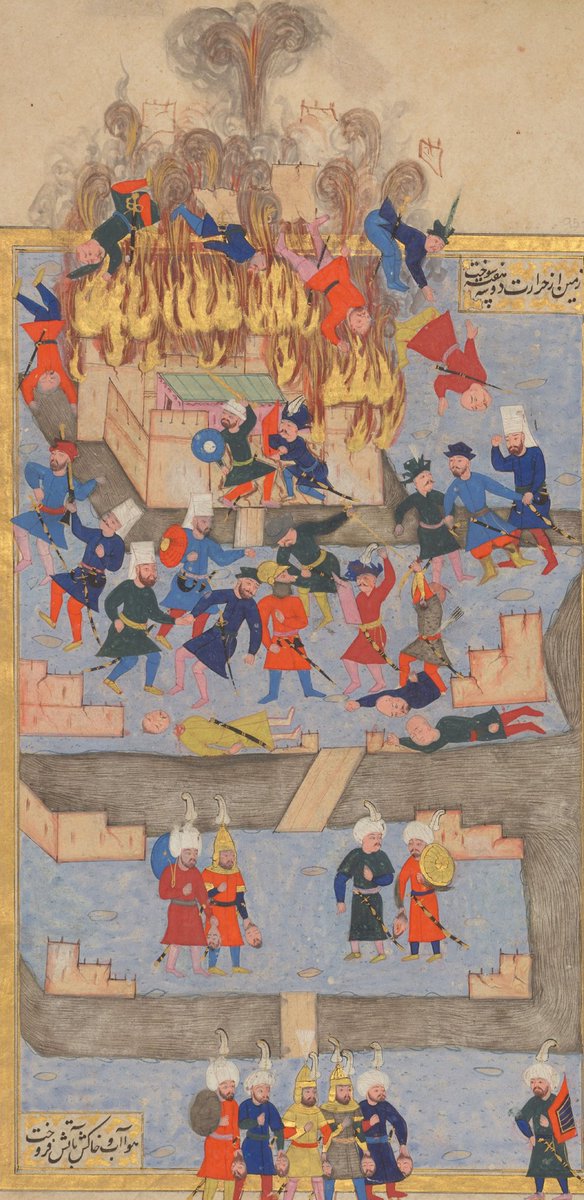 زمین از حرارت دو هفته بسوخت
هوا آب و خاکش بآتش فروخت